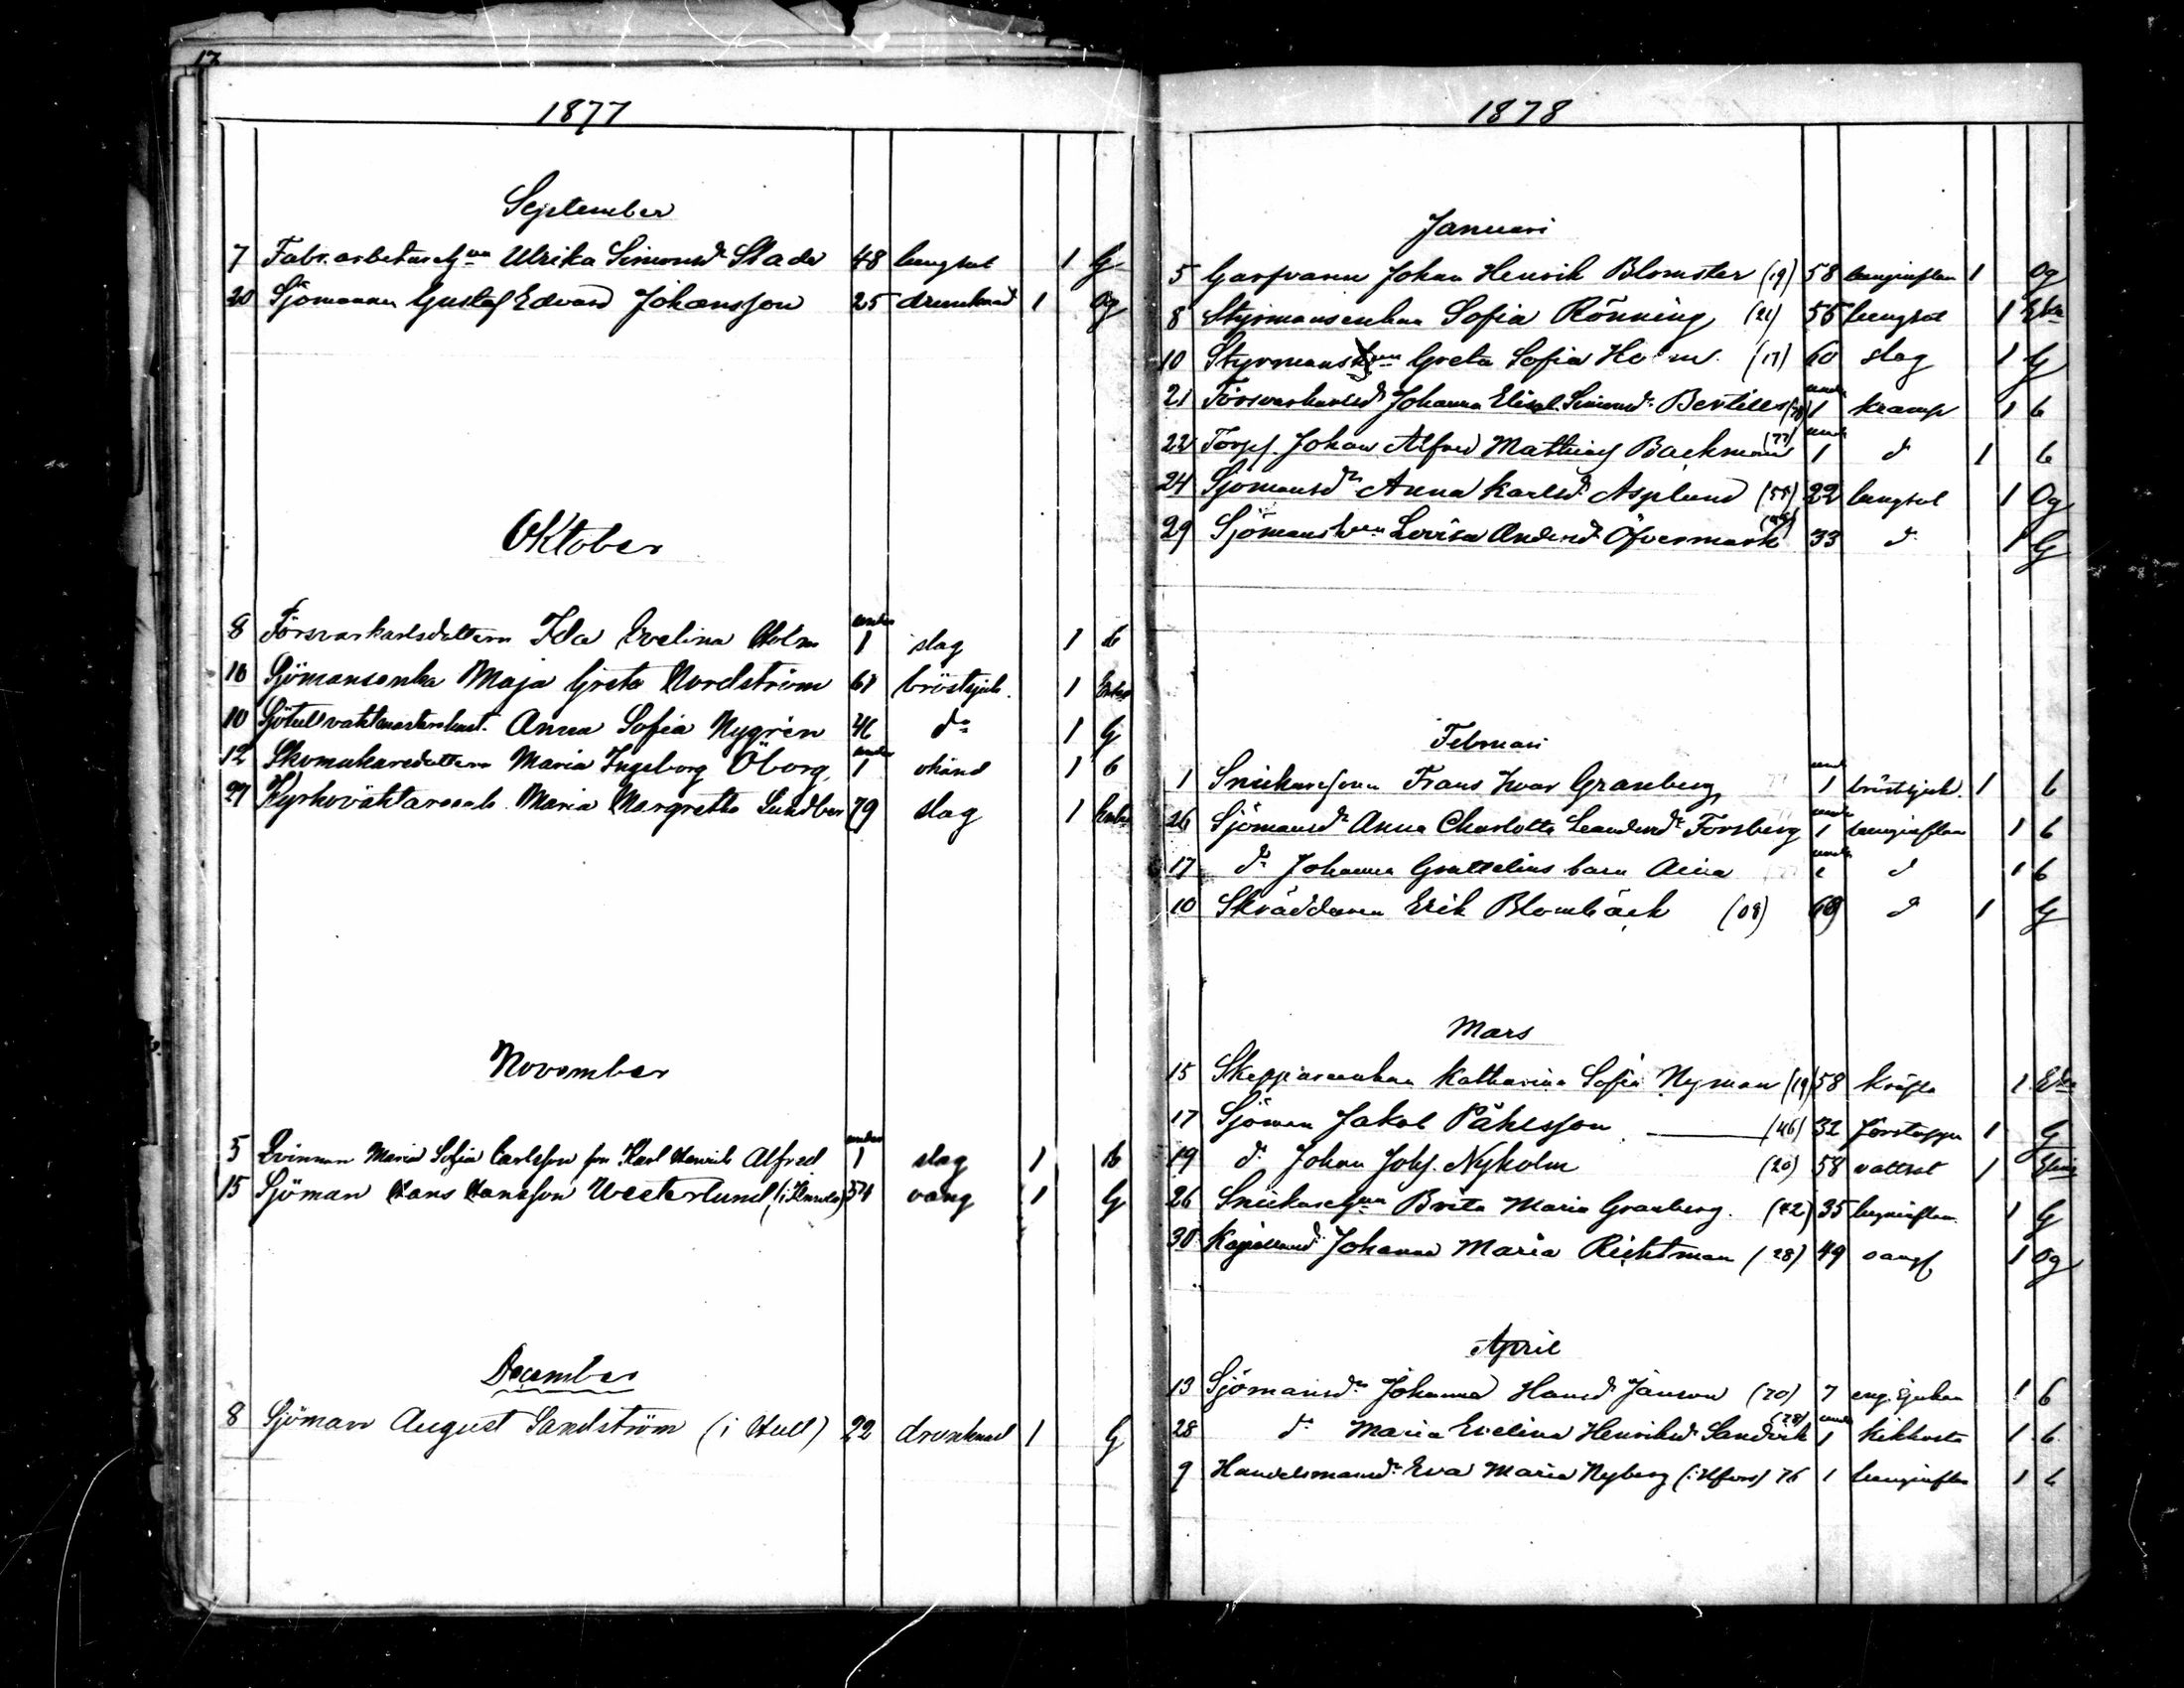 17
1877
September
7 Fabr. arbetareh:un Ulrika Simonsd:r Stade 48 lungsot 1 G
20 Sjömannen Gustaf Edvard Johansson 25 drunknad 1 Og
Oktober
8 Försvarkarlsdottern Ida Evelina Holm under 1 slag 1 b
10 Sjömansenka Maja Greta Nordström 61 bröstsjuk. 1 Enka
10 Sjötullvaktmästarehust. Anna Sofia Nygrén 46 d:o 1 G
12 Skomakaredottern Maria Ingeborg Öborg under 1 okänd 1 b
27 Maria Margretha Lundberg 79 slag 1
November
5 Qvinnan Maria Sofia Carlsson son Karl Henrik Alfred under 1 slag 1 b
15 Sjöman Hans Hansson Westerlund 54 1 G
December
8 Sjöman August Sandström (i Hull) 22 drunknad 1 G
1878
Januari
5 Garfvaren Johan Henrik Blomster (19) 58 lunginflam 1 Og
8 Styrmansenkan Sofia Rönning (21) 56 lungsot 1 Eka
10 Styrmansh:un Greta Sofia Holm (17) 60 slag 1 G
21 Försvarkarlsd:r Johanna Elisab. Simonsd:r Bertills (78) under 1 kramp 1 b
22 Torps. Johan Alfred Mathias Backman (77) under 1 d:o 1 b
24 Sjömansd:r Anna Karlsd:r Asplund (55) 22 lungsot 1 Og
29 Sjömansh:un Lovisa Andersd:r Öfvermark 33 d:o 1 G
Februari
1 Snickaresonen Frans Ivar Granberg under 1 bröstsjuk. 1 b
26 Sjömansd:r Anna Charlotta Leandersd:r Forsberg under 1 lunginflam 1 b
17 d:o Johanna barn Aina under 1 d:o 1 b
10 Skräddaren Erik Blombäck (09) 69 d:o 1 G
Mars
15 Skeppareenkan Katharina Sofia Nyman (19) 58 kräfta 1 Eka
17 Sjöman Jakob Påhlsson (46) 32 förstoppn 1 G
19 d:o Johan Johs. Nyholm (20) 58 vattsot 1
26 Snickareh:un Brita Maria Granberg. (42) 35 lunginflam 1 G
30 Johanna Maria Richtman (28) 49 1 Og
April
13 Sjömansd:r Johanna Hansd:r Janson (70) 7 eng. sjukan 1 b
28 d:o Maria Evelina Henriksd:r Sandvik (78) under 1 kikhosta 1 b
9 Handelsmansd:r Eva Maria Nyberg (i Hfors) 76 1 lunginflam 1 b